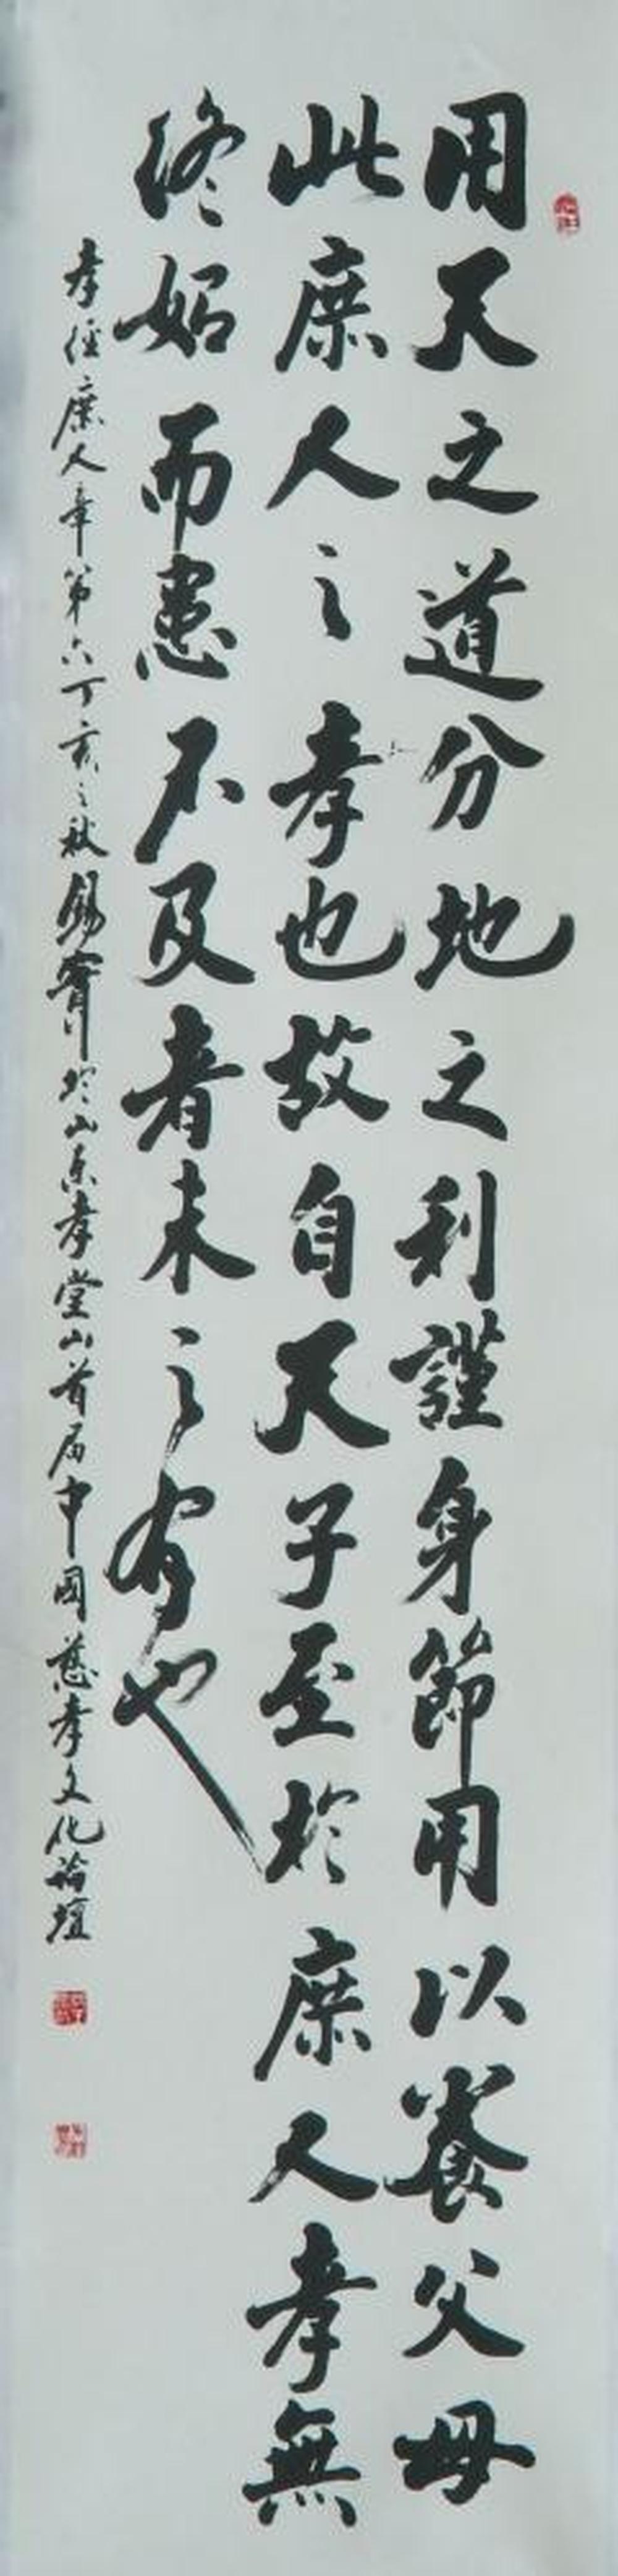 用天之道分地之利謹身節用以養父母
此庶人之孝也故自天子至於庶人孝無
終始而患不及者未之有也
孝經庶人章第六丁亥之秋錫寶於山東孝堂山首屆中國慈孝文化論壇